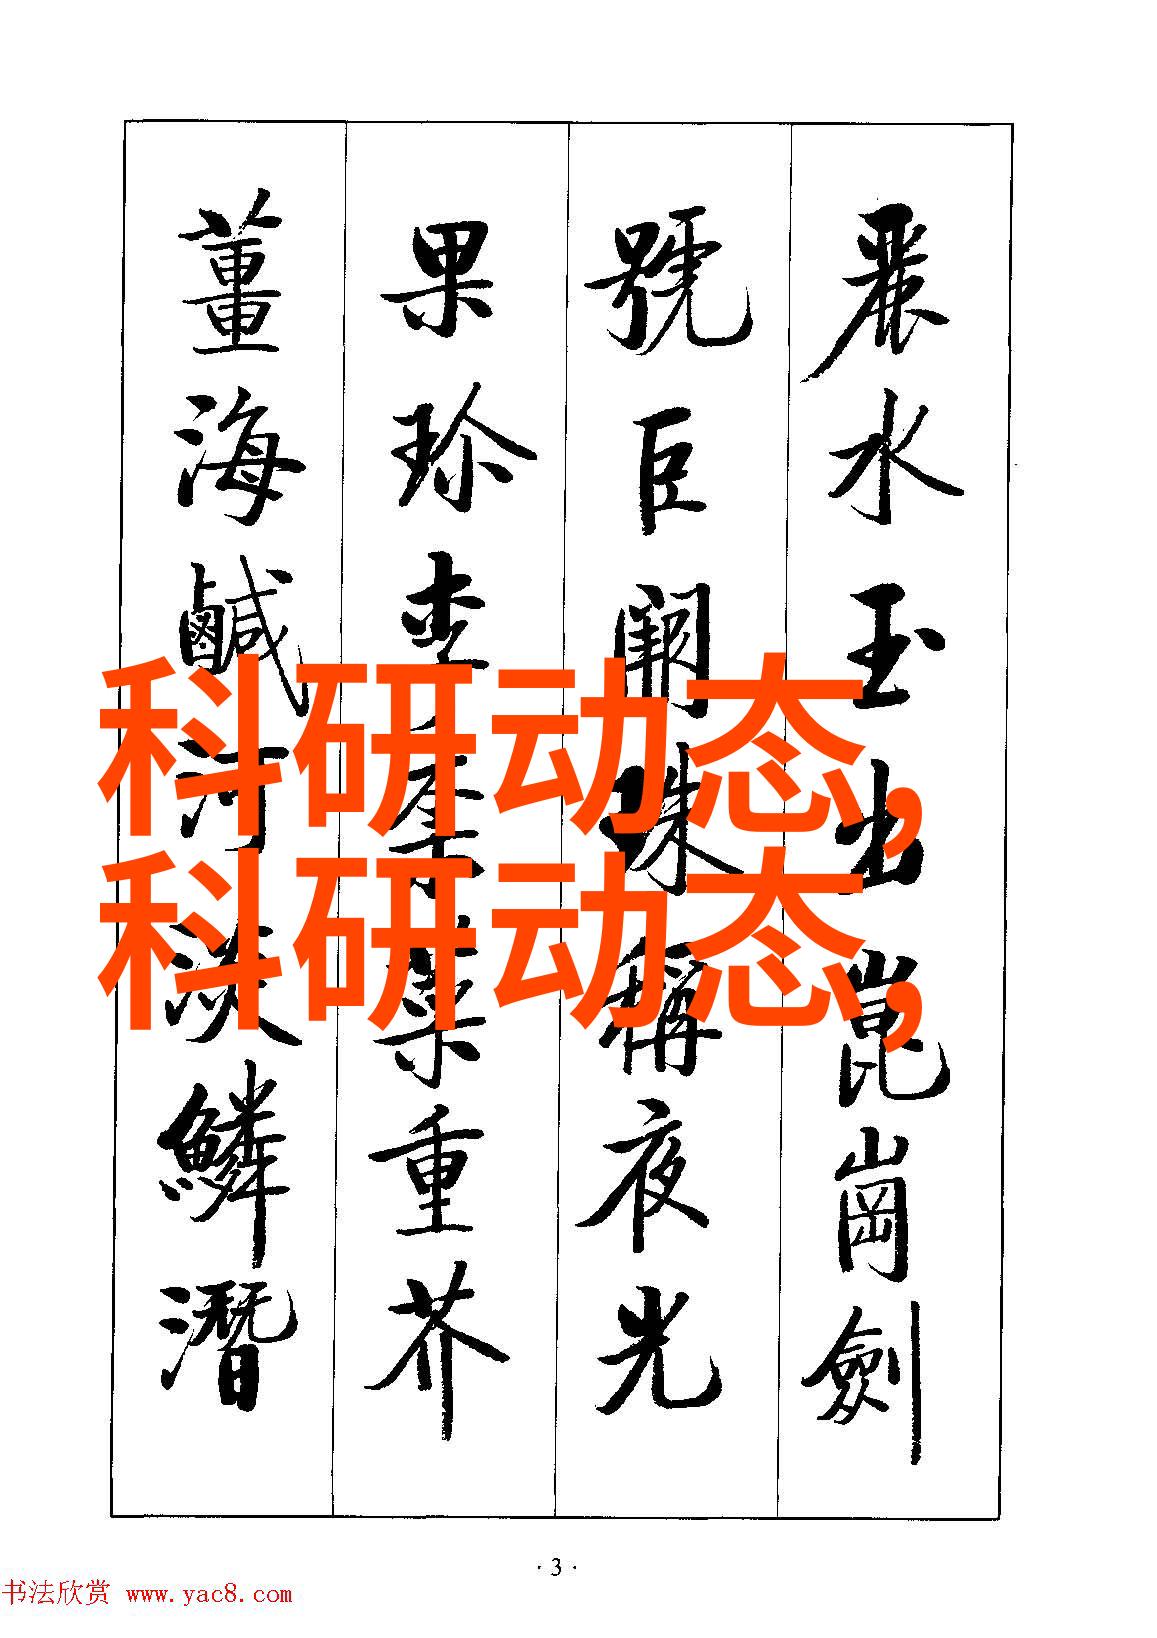 麗水玉出崑崗劍
號巨闕珠稱夜光
果珍李柰菜重芥
薑海鹹河淡鱗潛
科研动态,
科研动态,
· 3 ·
书法欣赏 www.yac8.com